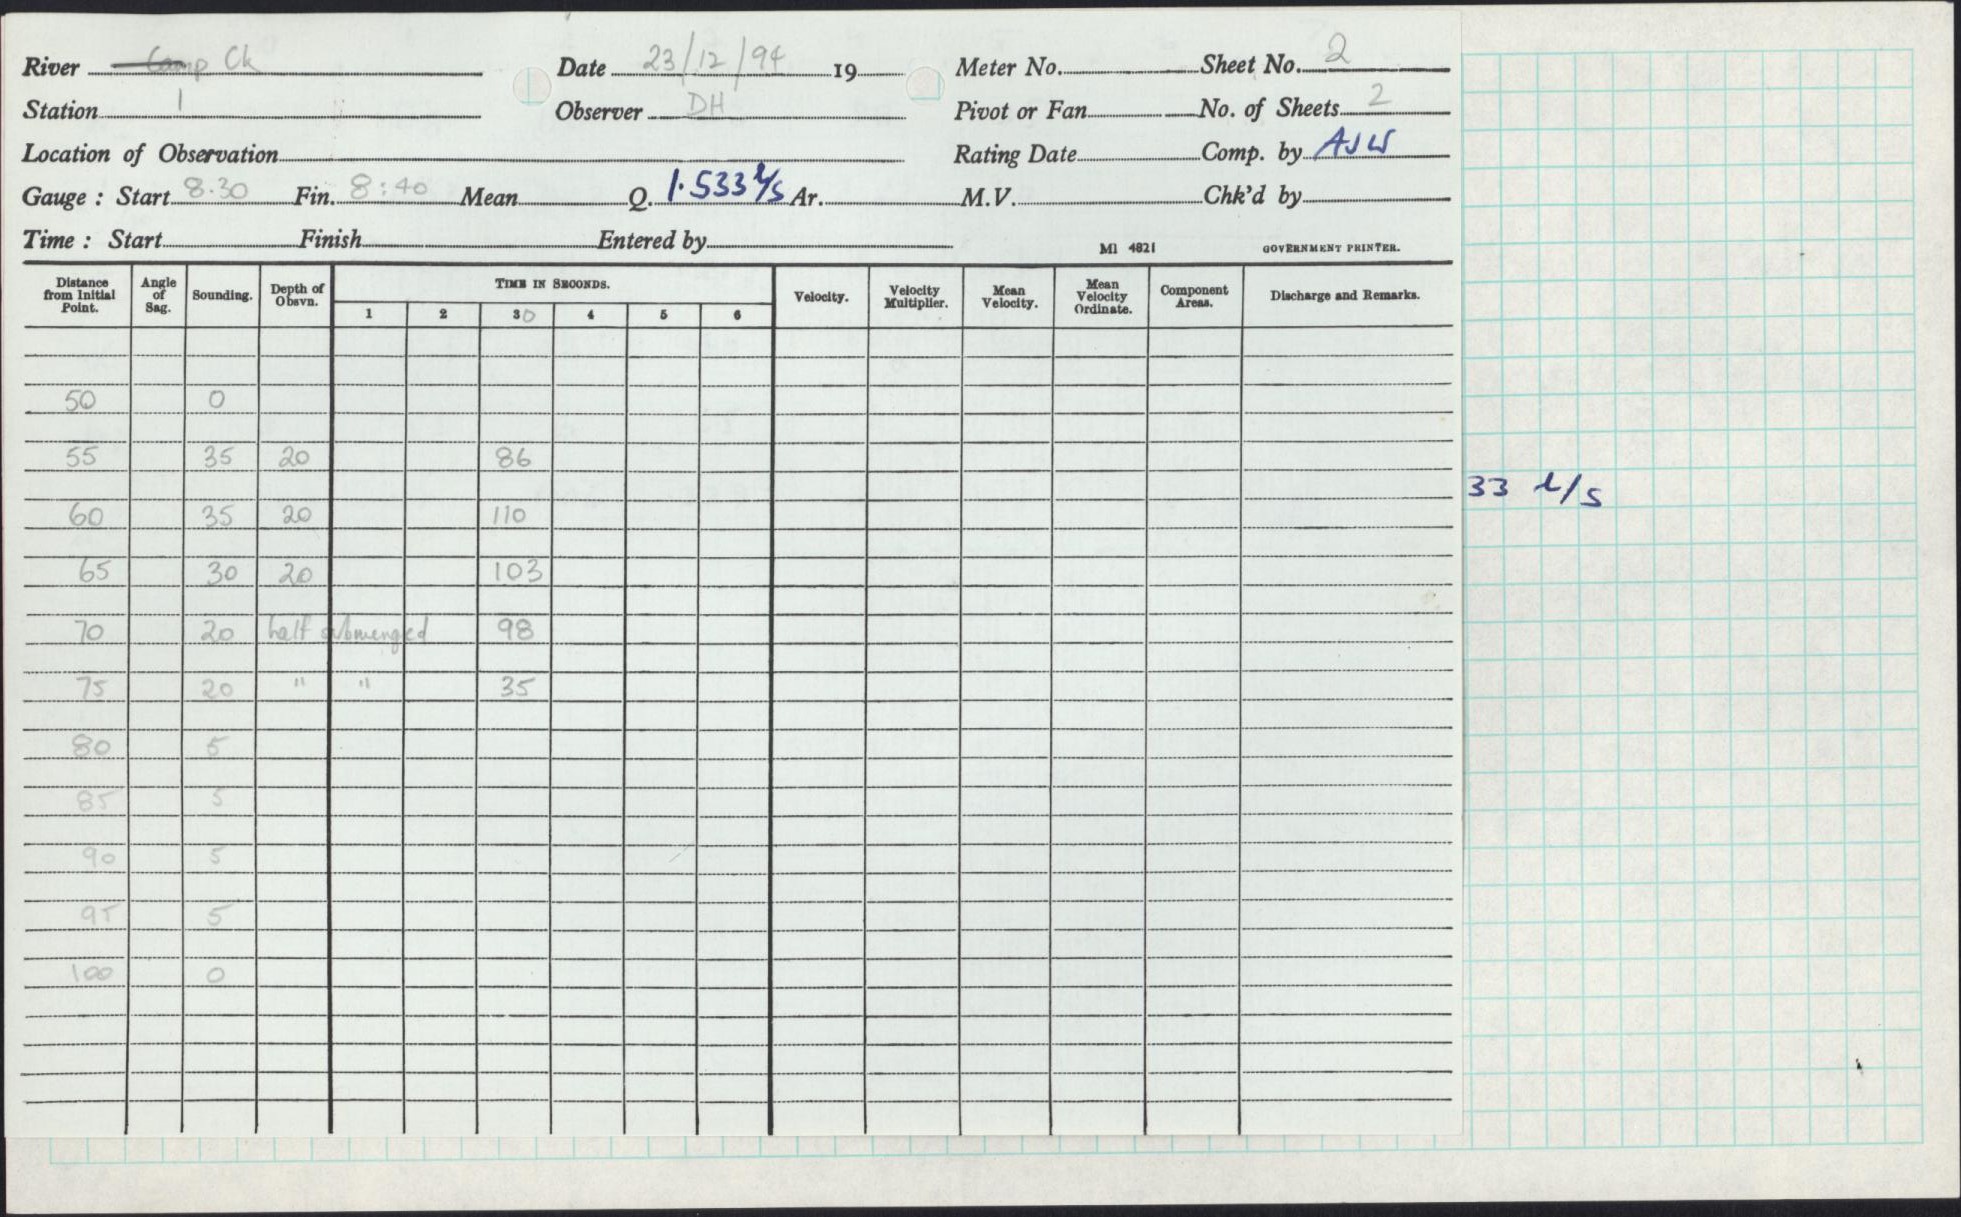 River Camp Ck Date 23/12/94 19 Meter No. Sheet No. 2
Station 1 Observer DH Pivot or Fan No. of Sheets 2
Location of Observation Rating Date Comp. by AJW
Gauge : Start 8.30 Fin. 8:40 Mean Q. 1.533 l/s Ar. M.V. Chk'd by
Time : Start Finish Entered by M1 4821 GOVERNMENT PRINTER.
Distance from Initial Point. Angle of Sag. Sounding. Depth of Obsvn. TIME IN SECONDS. Velocity. Velocity Multiplier. Mean Velocity. Mean Velocity Ordinate. Component Areas. Discharge and Remarks.
1 2 30 4 5 6
50 0
55 35 20 86
33 l/s
60 35 20 110
65 30 20 103
70 20 half submerged 98
75 20 " " 35
80 5
85 5
90 5
95 5
100 0